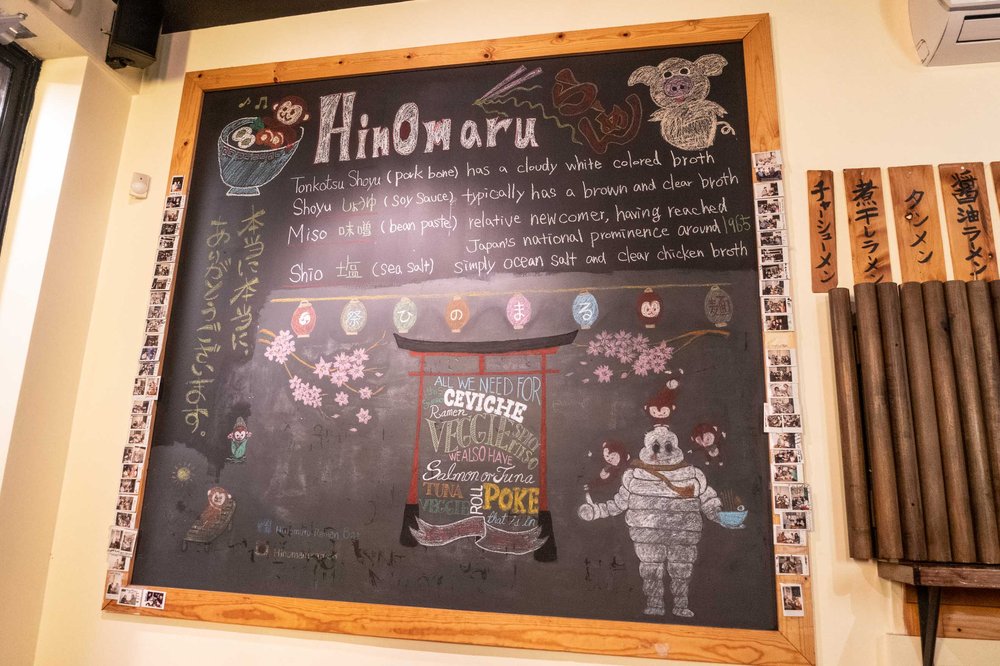 HinOmaru
Tonkotsu Shoyu (pork bone) has a cloudy white colored broth
Shoyu しょうゆ (soy sauce), typically has a brown and clear broth
Miso 味噌 (bean paste) relative newcomer, having reached
Japan's national prominence around 1965
Shio 塩 (sea salt) simply ocean salt and clear chicken broth
祭 ひ の ま る
ALL WE NEED FOR
CEVICHE
Ramen
VEGGIE
WE ALSO HAVE
Salmon or Tuna
TUNA
VEGGIE
ROLL
POKE
that is in
チャーシューメン
煮干しラーメン
タンメン
醤油ラーメン